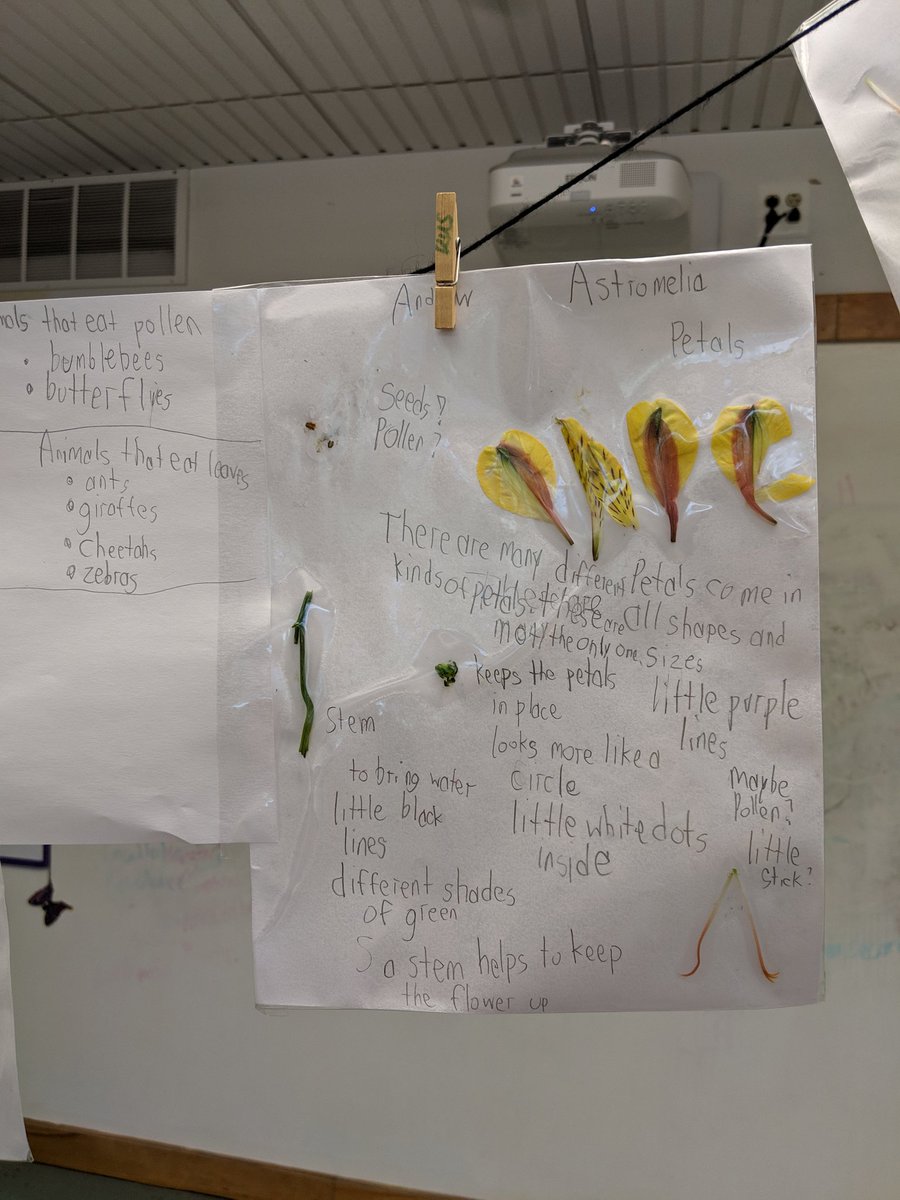 mals that eat pollen
• bumblebees
• butterflies
Animals that eat leaves
• ants
• giraffes
• cheetahs
• zebras
Astromelia
Petals
Seeds?
Pollen?
There are many different
kinds of petals these are
not the only one.
Petals come in
all shapes and
sizes
little purple
lines
Stem
to bring water
little black
lines
different shades
of green
a stem helps to keep
the flower up
keeps the petals
in place
looks more like a
circle
little white dots
inside
Maybe
Pollen?
little
stick?
EPSON